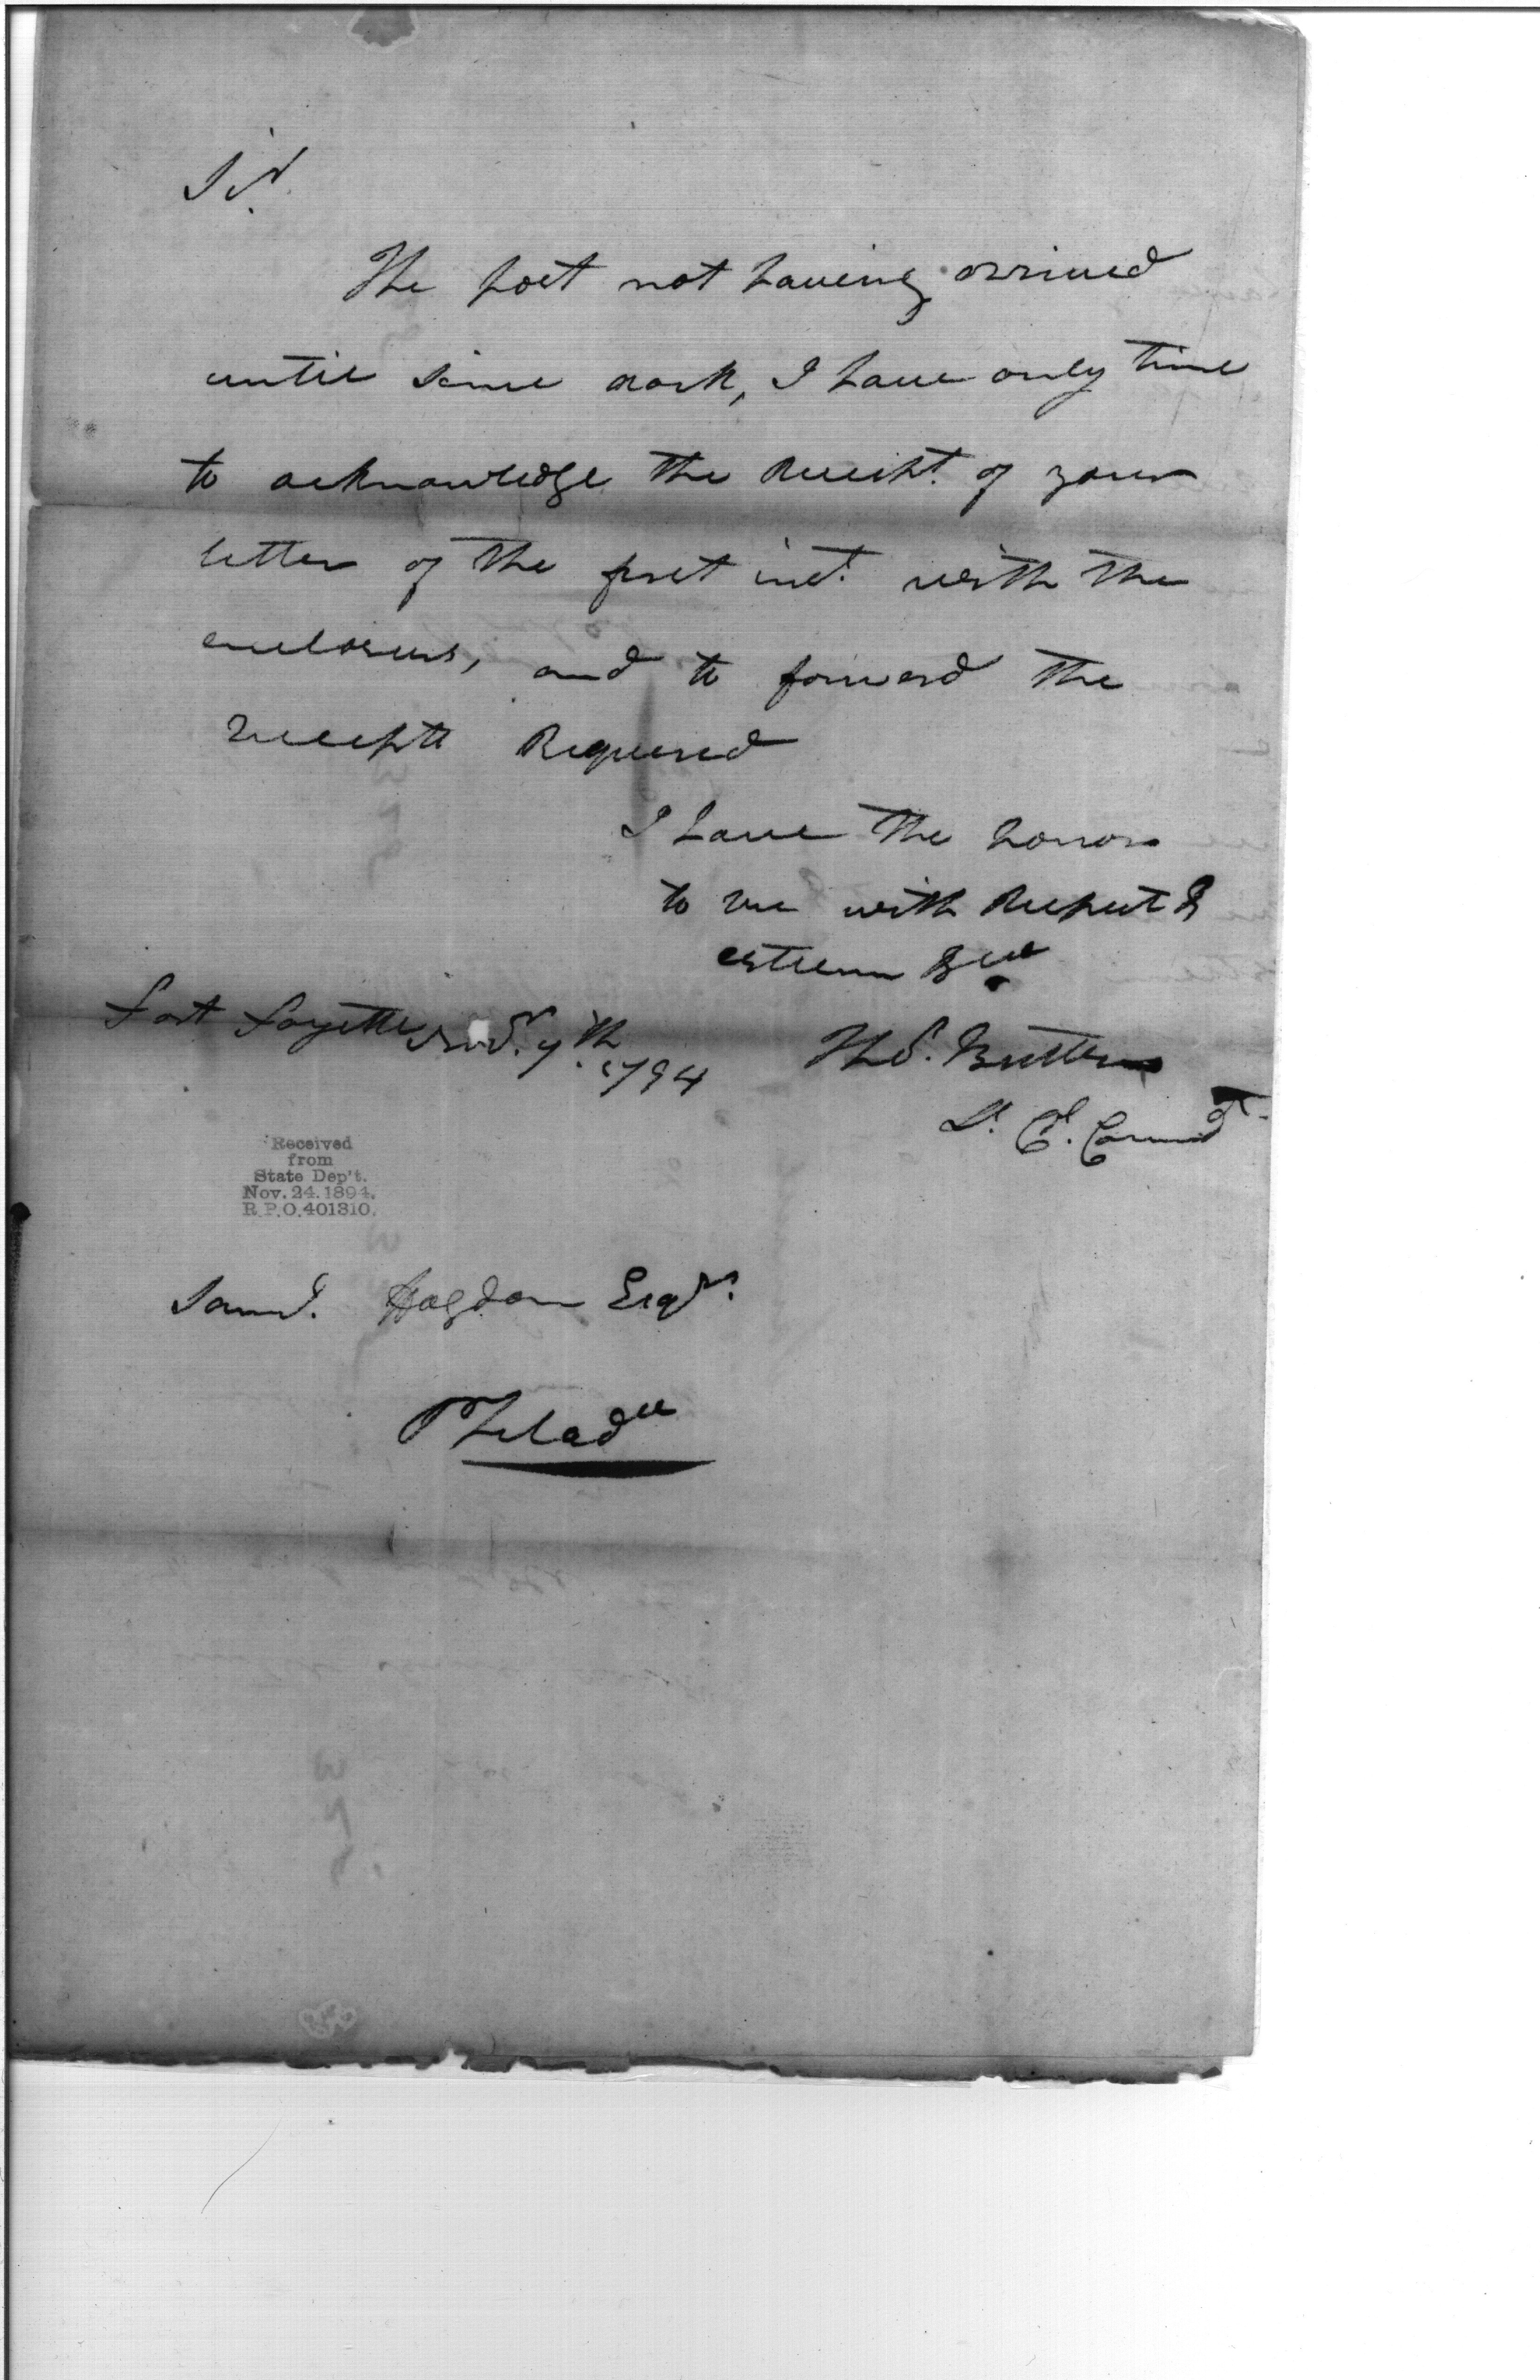 Sir.
The post not having arrived
until since dark, I have only time
to acknowledge the Receipt. of your
letter of the first inst. with the
enclosures, and to forward the
receipts Required
I have the honor
to be with Respect &
esteem &ca
Fort Fayette Novr. 7th. 1794
Thos. Butler
Lt. Cl. Commdt
Received
from
State Dep't.
Nov. 24. 1894.
R.P.O. 401310.
Saml. Hogdon Esqr.
Philada